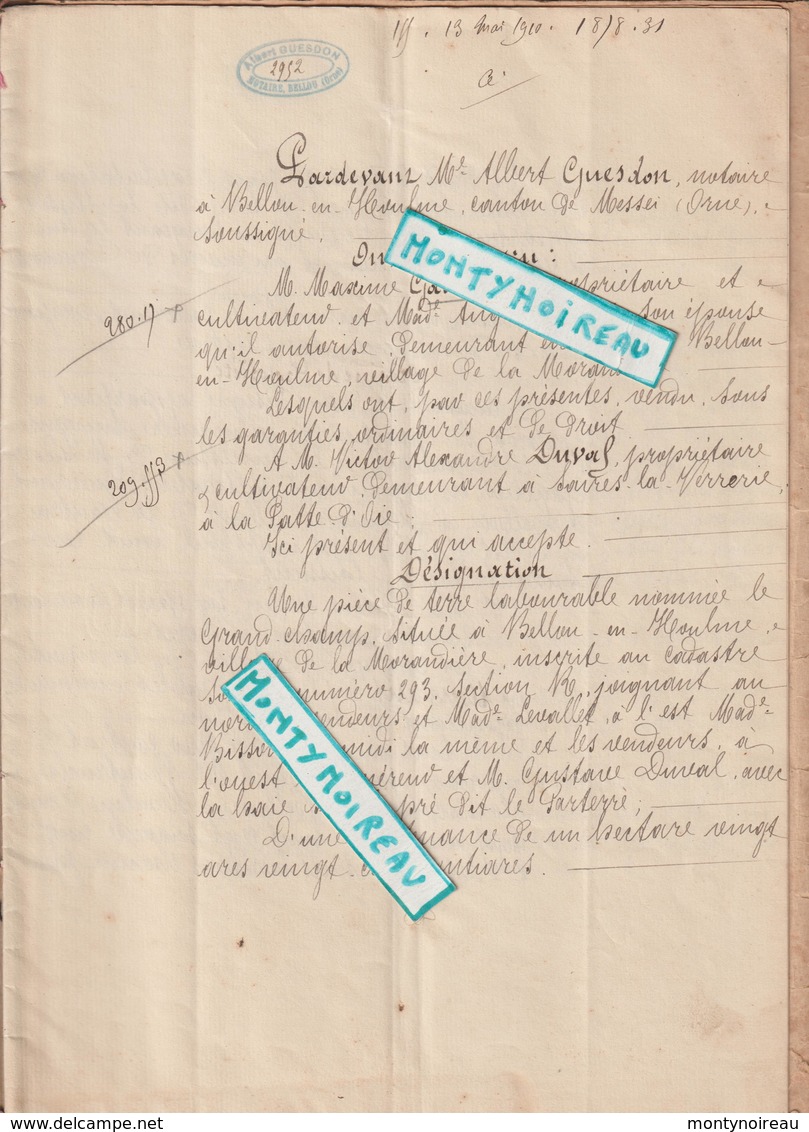 Albert GUESDON
2952
NOTAIRE, BELLOU (Orne)
13 Mai 1910. 1878.31
Pardevant Me Albert Guesdon, notaire
à Bellou-en-Houlme, canton de Messei (Orne),
soussigné.
MONTYNOIREAU
M. Maxime propriétaire et
280.17 x
cultivateur et Made son épouse
qu'il autorise, demeurant Bellou-
en-Houlme, village de la
Lesquels ont, par ces présentes, vendu, sous
les garanties ordinaires et de droit
A M. Victor Alexandre Duval, propriétaire
209.
& cultivateur, demeurant à Saires-la-Verrerie,
à la Patte d'Oie.
Ici présent et qui accepte.
Désignation
Une pièce de terre labourable nommée le
Grand-champ, située à Bellou-en-Houlme,
village de la Morandière, inscrite au cadastre
numéro 293, section K, joignant au
et Made Levallet, à l'est Made
midi la même et les vendeurs, à
l'ouest et M. Gustave Duval, avec
la haie pré dit le Parterre;
MONTYNOIREAU
D'une de un hectare vingt
ares vingt
montynoireau
DELCAMPE.NET